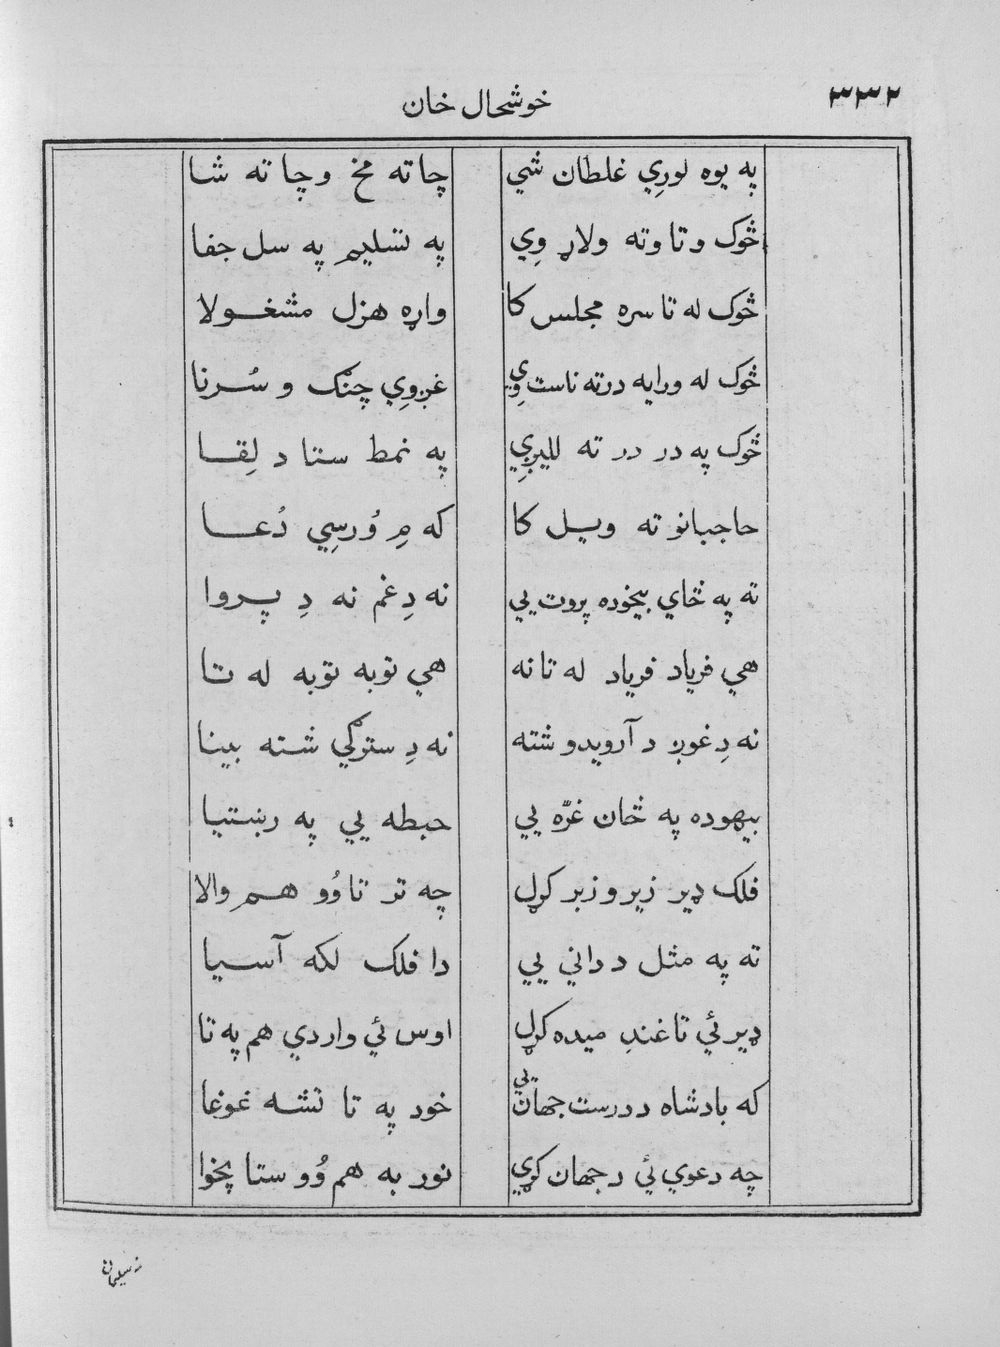 خوشحال خان ۳۳۲
په یوه لورِي غلطان شي چا ته مخ و چا ته شا
څوک و تا وته ولاړ وِي په تسلیم په سل جفا
څوک له تا سره مجلس کا واړه هزل مشغولا
څوک له ورایه درته ناست وِي غږوِي چنګ و سُرنا
څوک په در در ته للیږِي په نمط ستا د لِقا
حاجبانو ته ویل کا که مِ وُرسِي دُعا
ته په ځاي بیخوده پروت یي نه دِ غم نه دِ پروا
هي فریاد فریاد له تا نه هي توبه توبه له تا
نه دِ غوږ د آرویدو شته نه دِ سترګي شته بینا
بیهوده په ځان غرّه یي حبطه یي په رښتیا
فلک ډیر زیر و زبر کړل چه تر تا وُو هم والا
ته په مثل د داني یي دا فلک لکه آسیا
ډیر ئي تا غندِ میده کړل اوس ئي وار دي هم په تا
که بادشاه د درست جهان یي خود په تا نشه غوغا
چه دعوي ئي د جهان کړي نور به هم وُو ستا پخوا
نه سلیمان